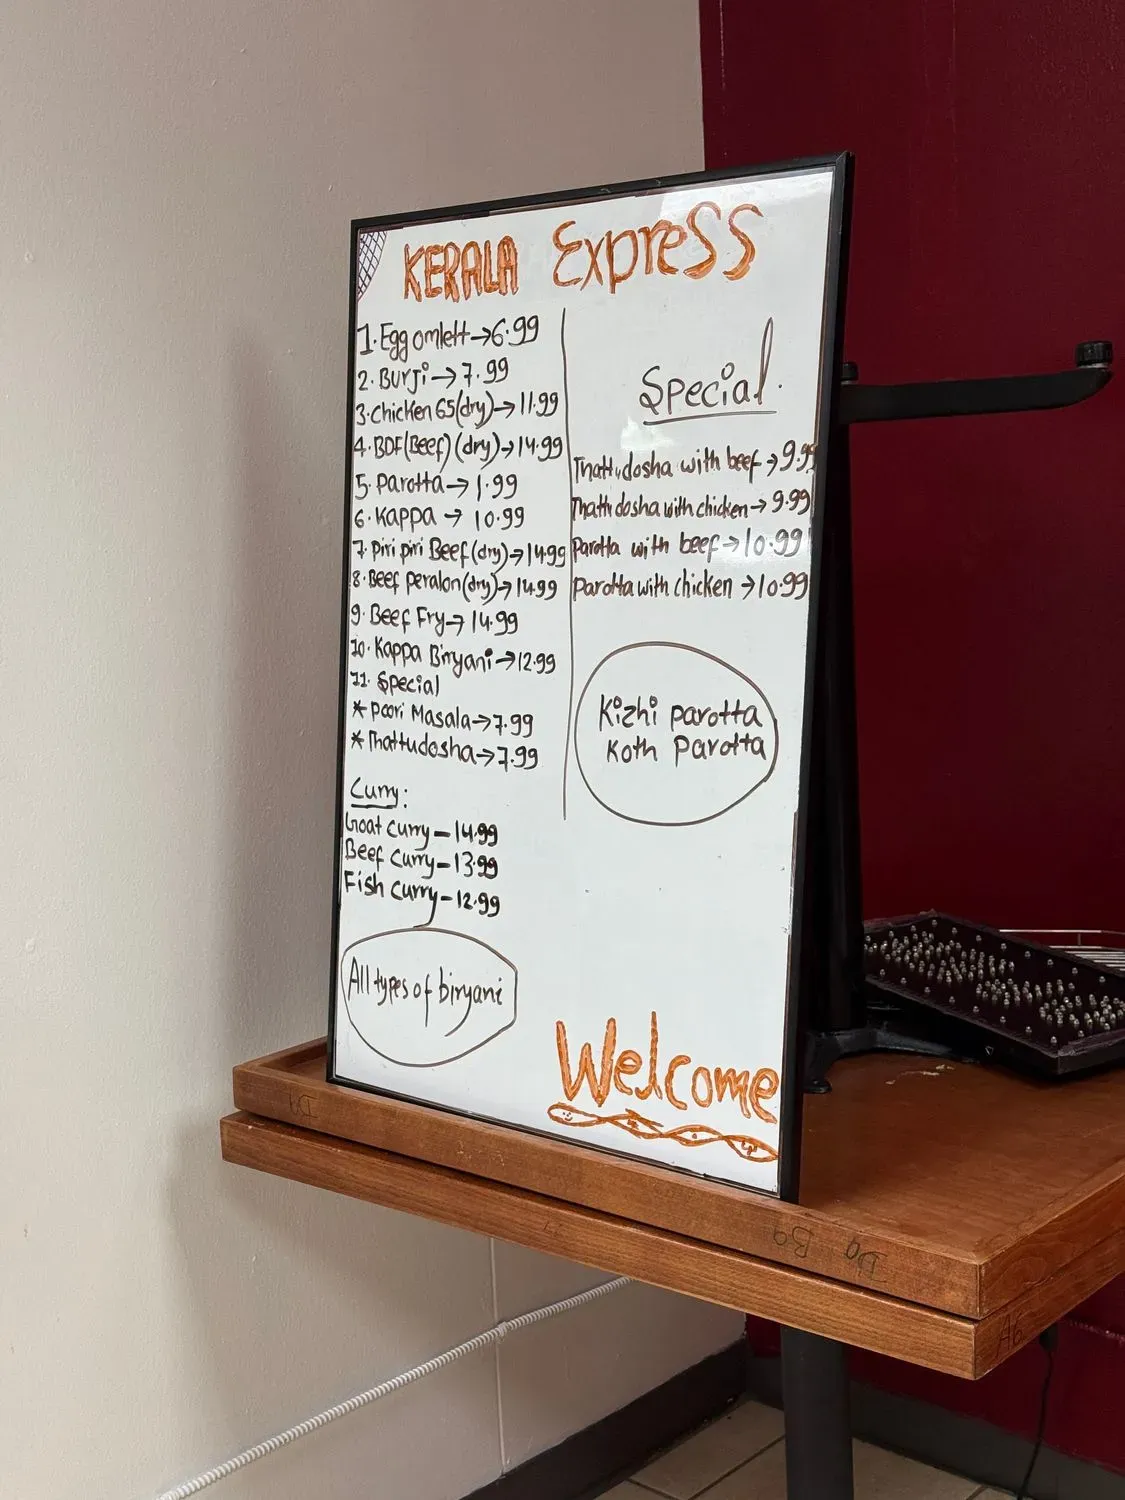 KERALA Express
1. Egg omlett → 6.99
2. Burji → 7.99
3. Chicken 65 (dry) → 11.99
4. BDF (Beef) (dry) → 14.99
5. Parotta → 1.99
6. Kappa → 10.99
7. Piri piri Beef (dry) → 14.99
8. Beef peralan (dry) → 14.99
9. Beef Fry → 14.99
10. Kappa Biryani → 12.99
11. Special
* Poori Masala → 7.99
* Thattudosha → 7.99
Curry:
Goat Curry – 14.99
Beef Curry – 13.99
Fish Curry – 12.99
All types of biryani
Special.
Thattudosha with beef → 9.99
Thattudosha with chicken → 9.99
Parotta with beef → 10.99
Parotta with chicken → 10.99
Kizhi parotta
Koth Parotta
Welcome
B9
D9
A6